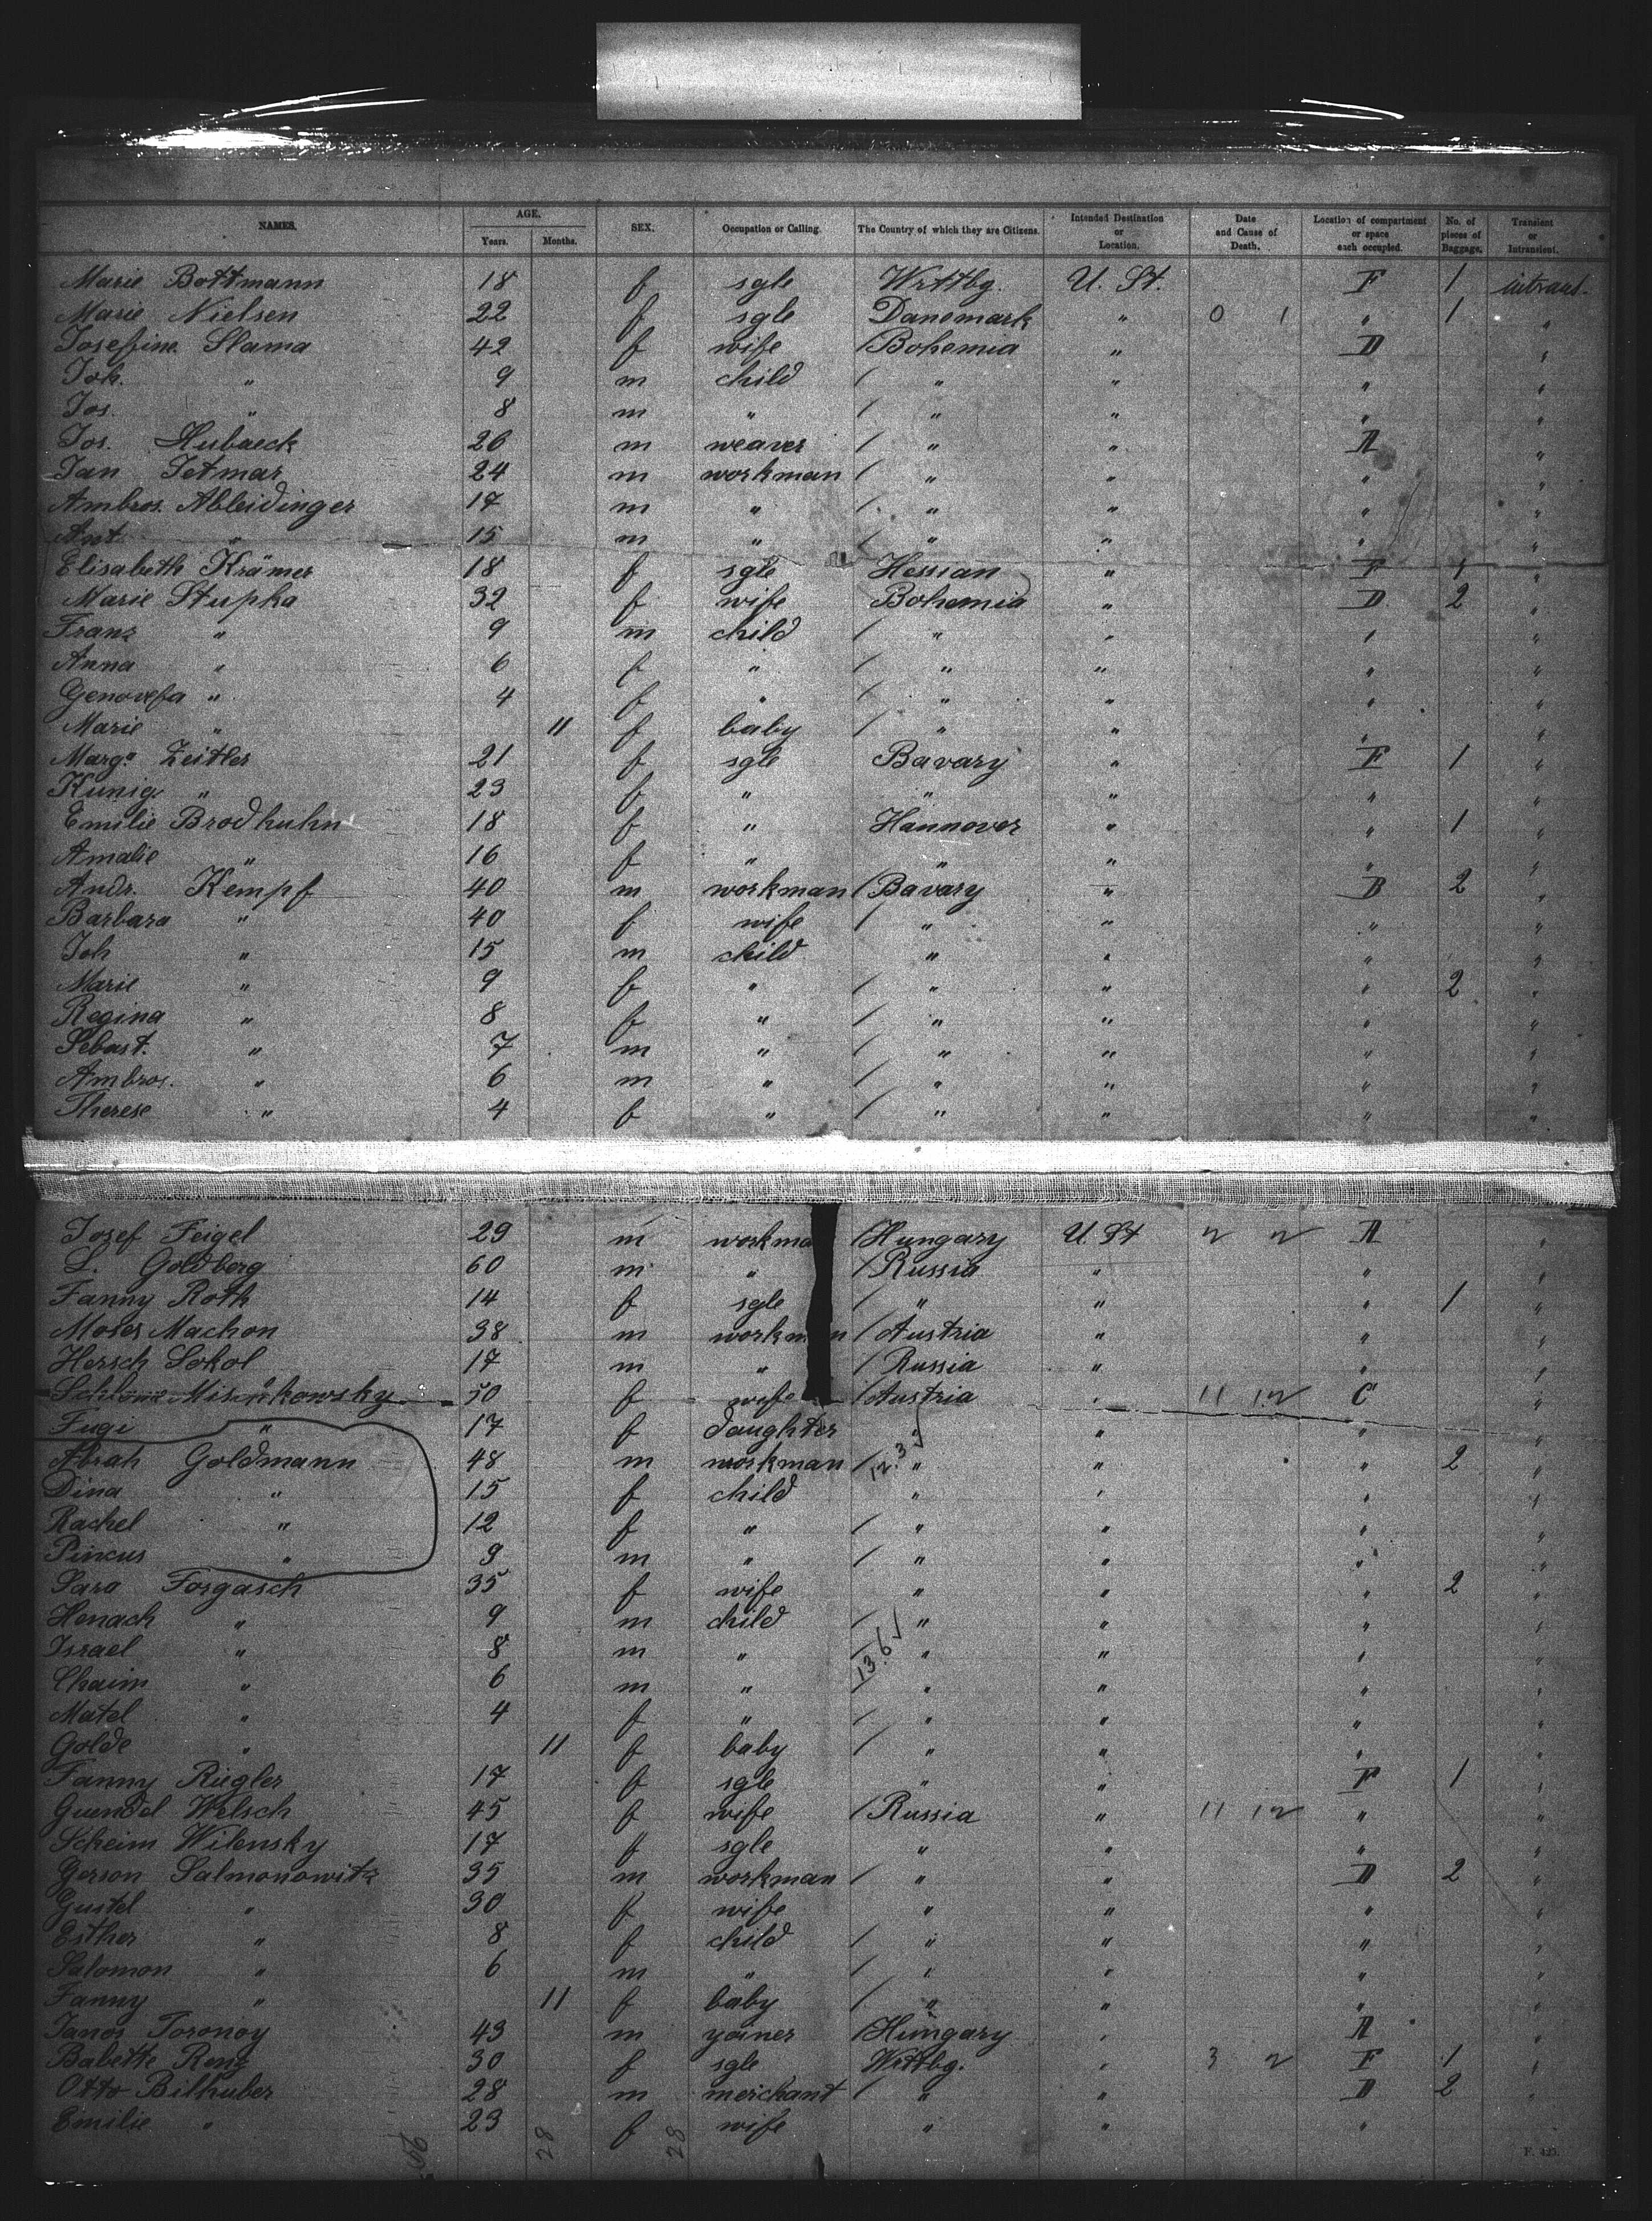 NAMES. AGE. Years. Months. SEX. Occupation or Calling. The Country of which they are Citizens. Intended Destination or Location. Date and Cause of Death. Location of compartment or space each occupied. No. of pieces of Baggage. Transient or Intransient.
Marie Bottmann 18 f sgle Wrttbg. U. St. F 1 intrans.
Marie Nielsen 22 f sgle Danemark " 0 1 " 1 "
Josefine Slama 42 f wife / Bohemia " D "
Joh. " 9 m child / " " " "
Jos. " 8 m " / " " " "
Jos. Hubaeck 26 m weaver / " " A "
Jan Jetmar 24 m workman / " " " "
Ambros. Ableidinger 17 m " / " " " "
Ant. " 15 m " / " " " "
Elisabeth Krämer 18 f sgle Hessian " F 1 "
Marie Stupka 32 f wife Bohemia " D 2 "
Franz " 9 m child / " " " "
Anna " 6 f " / " " " "
Genovefa " 4 f " / " " " "
Marie " 11 f baby / " " " "
Marg. Zeitler 21 f sgle Bavary " F 1 "
Kunig. " 23 f " " " " "
Emilie Brodhuhn 18 f " Hannover " " 1 "
Amalie " 16 f " " " " "
Andr. Kempf 40 m workman / Bavary " D 2 "
Barbara " 40 f wife / " " " "
Joh " 15 m child " " " "
Marie " 9 f " / " " " 2 "
Regina " 8 f " / " " " "
Sebast. " 7 m " / " " " "
Ambros. " 6 m " / " " " "
Therese " 4 f " / " " " "
Josef Feigel 29 m workma / Hungary U. St A "
L. Goldberg 60 m " / Russia " " "
Fanny Roth 14 f sgle / " " " 1 "
Moses Machon 38 m workm n / Austria " " "
Hersch Sokol 17 m " / Russia " " "
Mischkowsky 50 f wife / Austria " 11 12 C "
Fugi " 17 f daughter " " " "
Abrah Goldmann 48 m workman / 12.3 " " " 2 "
Dina " 15 f child " " " "
Rachel " 12 f " / " " " "
Pincus " 9 m " / " " " "
Sara Forgasch 35 f wife " " " 2 "
Henach " 9 m child / " " " "
Israel " 8 m " / 13.6 " " " "
Chaim " 6 m " / " " " "
Matel " 4 f " / " " " "
Golde " 11 f baby / " " " "
Fanny Riegler 17 f sgle " " F 1 "
Guendel Welsch 45 f wife / Russia " 11 12 " "
Scheim Wilensky 17 f sgle " " " "
Gerson Salmonowitz 35 m workman / " " D 2 "
Gustel " 30 f wife " " " "
Esther " 8 f child / " " " "
Salomon " 6 m " / " " " "
Fanny " 11 f baby / " " " "
Janos Toronoy 43 m yoiner / Hungary " A "
Babette Renz 30 f sgle Wrttbg. " 3 2 F 1 "
Otto Bilhuber 28 m merchant / " " D 2 "
Emilie " 23 f wife " " "
28 28